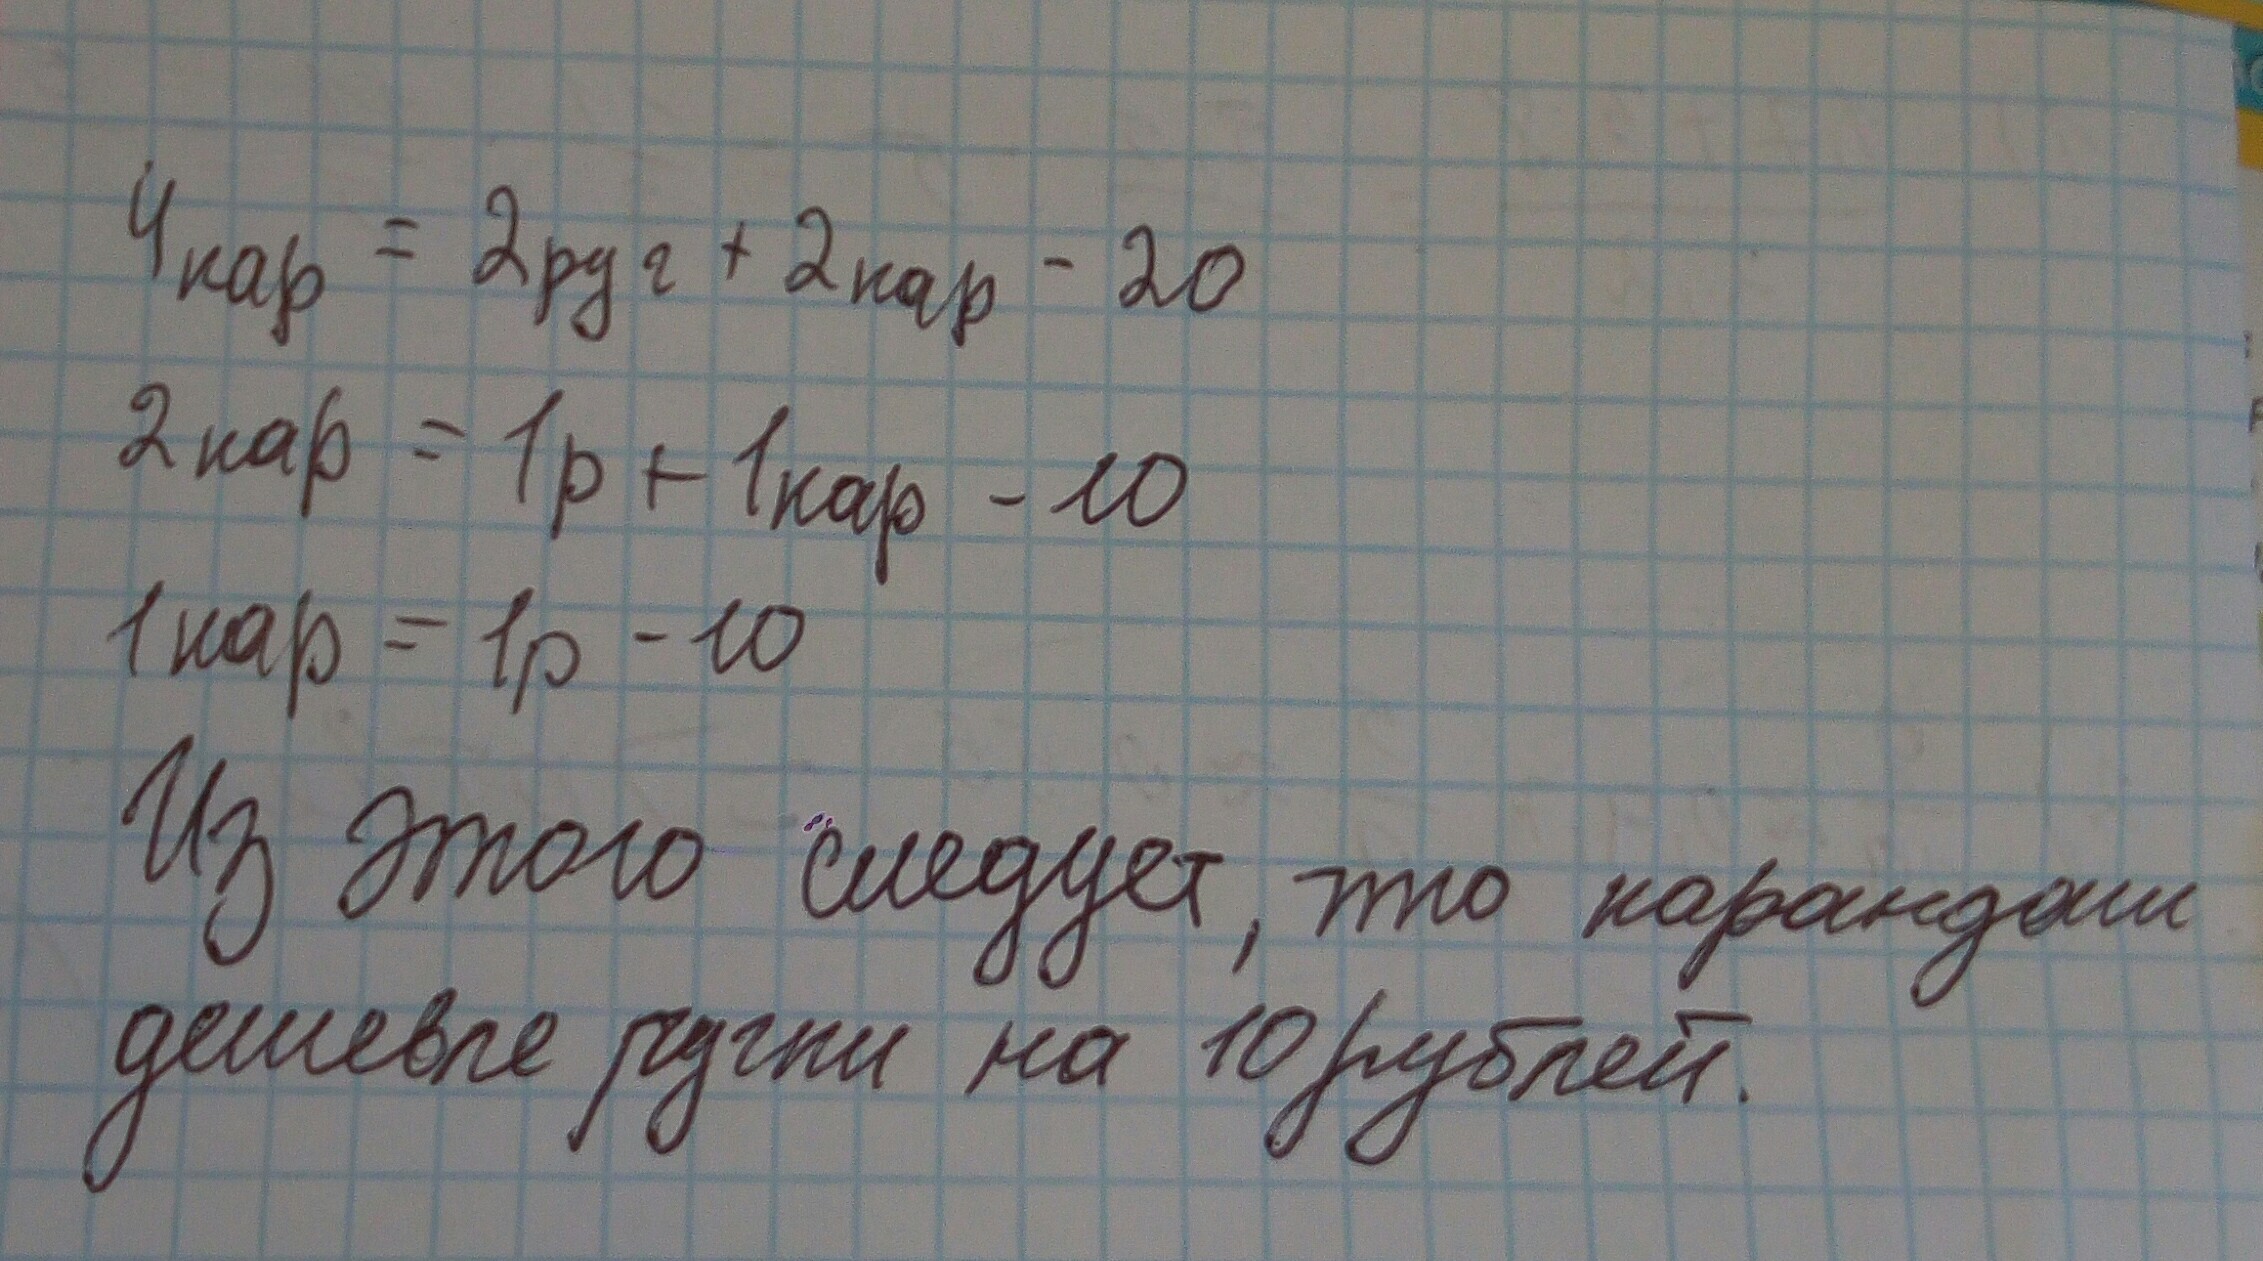 4кар = 2руч + 2кар - 20
2кар = 1р + 1кар - 10
1кар = 1р - 10
Из этого следует, что карандаш
дешевле ручки на 10 рублей.